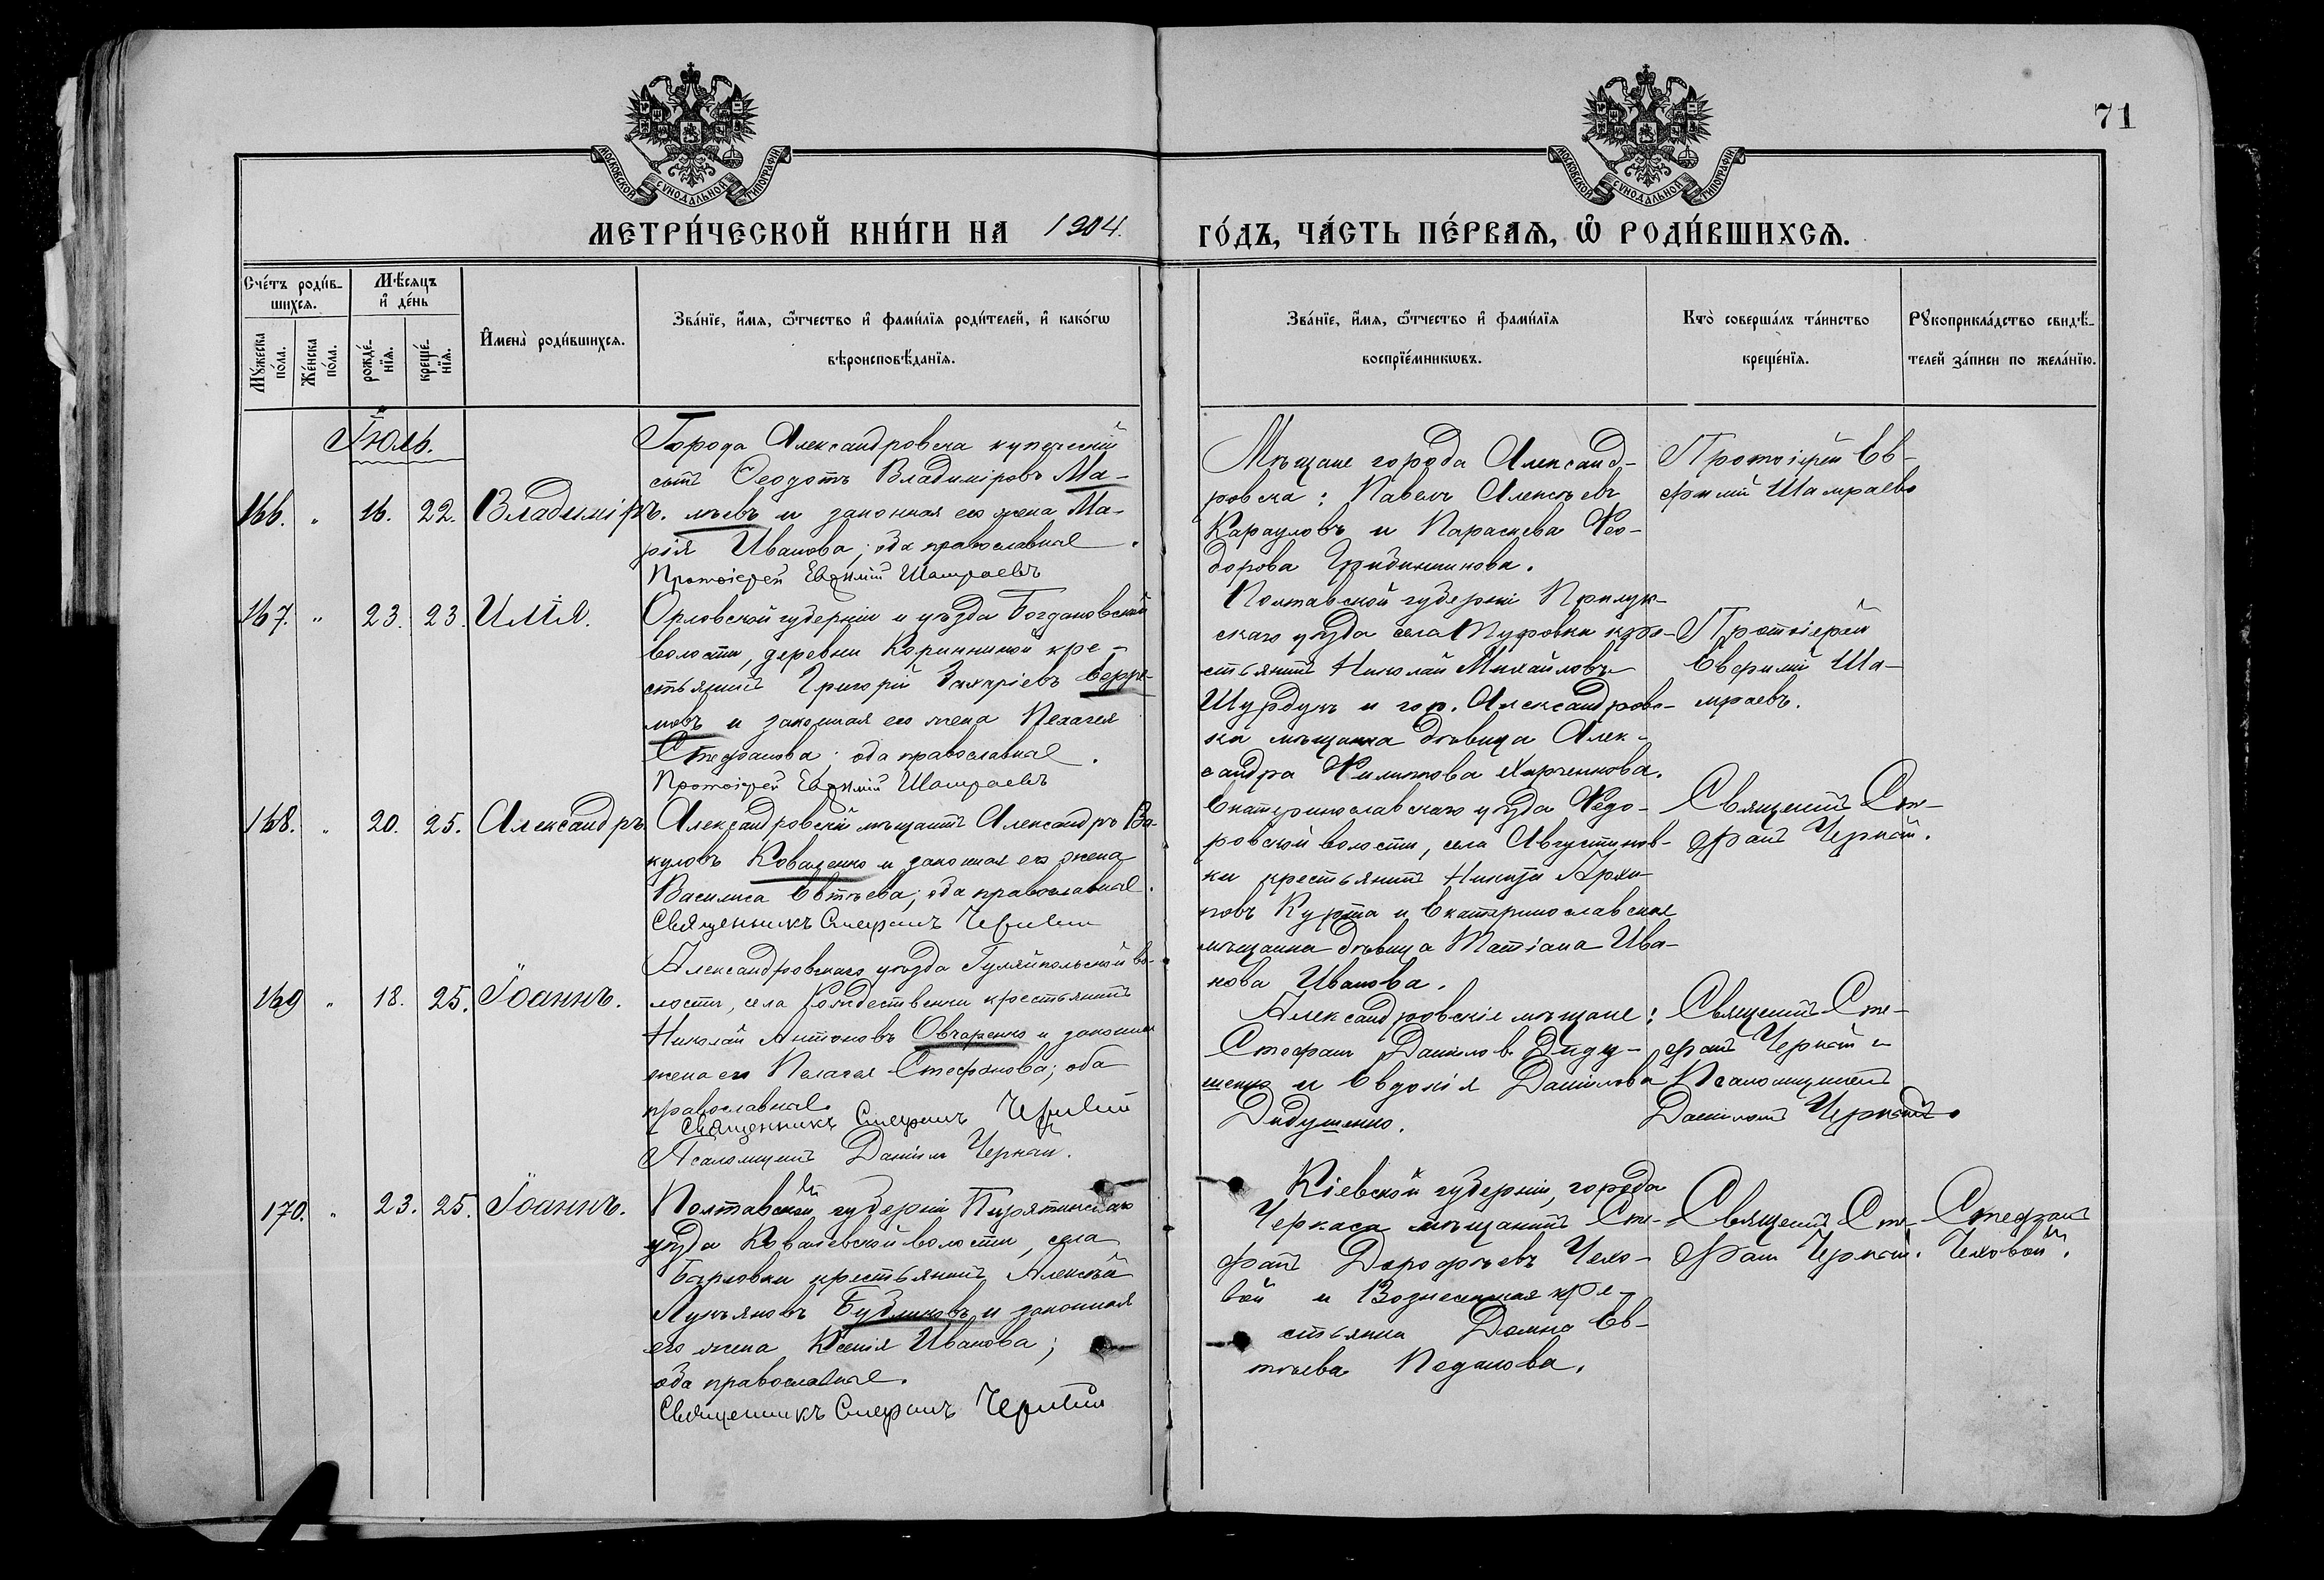 71
МОСКОВСКОЙ СѴНОДАЛЬНОЙ ТИПОГРАФІИ
МОСКОВСКОЙ СѴНОДАЛЬНОЙ ТИПОГРАФІИ
МЕТРИ́ЧЕСКОЙ КНИ́ГИ НА 1904.
ГО́ДЪ, ЧА́СТЬ ПЕ́РВАѦ, Ѡ҆ РОДИ́ВШИХСѦ.
Сче́тъ роди́в-
шихсѧ.
Мѣ́сѧцъ
и҆ де́нь
Мꙋ́жеска
по́ла.
Же́нска
по́ла.
рожде́-
нїѧ.
креще́-
нїѧ.
И҆мена̀ роди́вшихсѧ.
Зва́нїе, и҆́мѧ, ѻ҆́тчество и҆ фами́лїѧ роди́телей, и҆ како́гѡ
вѣроисповѣ́данїѧ.
Зва́нїе, и҆́мѧ, ѻ҆́тчество и҆ фами́лїѧ
воспрїе́мникѡвъ.
Кто̀ соверша́лъ та́инство
креще́нїѧ.
Рꙋкоприкла́дство свидѣ́-
телей за́писи по жела́нїю.
Іюль.
166. " 16. 22. Владиміръ.
Города Александровска купеческій
сынъ Ѳеодотъ Владиміровъ Ма-
ѣевъ и законная его жена Ма-
рія Иванова; оба православные.
Протоіерей Евѳимій Шамраевъ
Мѣщане города Александ-
ровска: Павелъ Алексѣевъ
Карауловъ и Параскева Ѳео-
дорова
Протоіерей Ев-
фимій Шамраевъ
167. " 23. 23. Илія.
Орловской губерніи и уѣзда Богдановской
волости, деревни кре-
стьянинъ Григорій Захаріевъ Ефре-
мовъ и законная его жена Пелагея
Стефанова; оба православные.
Протоіерей Евѳимій Шамраевъ
Полтавской губерніи Прилук-
скаго уѣзда села кре-
стьянинъ Николай Михайловъ
Шурдукъ и гор. Александровс-
ка мѣщанка дѣвица Алек-
сандра Филиппова Харченкова.
Протоіерей
Евфимій Ша-
мраевъ.
168. " 20. 25. Александръ
Александровскій мѣщанинъ Александръ Ва-
куловъ Коваленко и законная его жена
Василиса Евтѣева; оба православные.
Священникъ Стефанъ Черный
Екатеринославскаго уѣзда Ѳедо-
ровской волости, села Августинов-
ки крестьянинъ Никита Архи-
повъ Курта и Екатеринославская
мѣщанка дѣвица Татіана Ива-
нова Иванова.
Священникъ Сте-
фанъ Черный.
169 " 18. 25. Іоаннъ.
Александровскаго уѣзда Гуляйпольской во-
лости, села Рождественки крестьянинъ
Николай Антоновъ Овчаренко и законная
жена его Пелагея Стефанова; оба
православные.
Священникъ Стефанъ Черный
Псаломщикъ Даніилъ Черный.
Александровскіе мѣщане:
Стефанъ Даніиловъ Диду-
шенко и Евдокія Даніилова
Дидушенко.
Священникъ Сте-
фанъ Черный и
Псаломщикъ
Даніилъ Черный.
170. " 23. 25. Іоаннъ.
Полтавской губерніи Пирятинскаго
уѣзда Ковалевской волости, села
крестьянинъ Алексѣй
Лукьяновъ Бубликовъ и законная
его жена Ксенія Иванова;
оба православные.
Священникъ Стефанъ Черный
Кіевской губерніи, города
Черкаса мѣщанинъ Сте-
фанъ Дорофѣевъ Чехо-
вой и Вознесенская кре-
стьянка Домна Ев-
тѣева Педанова.
Священникъ Сте-
фанъ Черный.
Стефанъ
Чеховой.